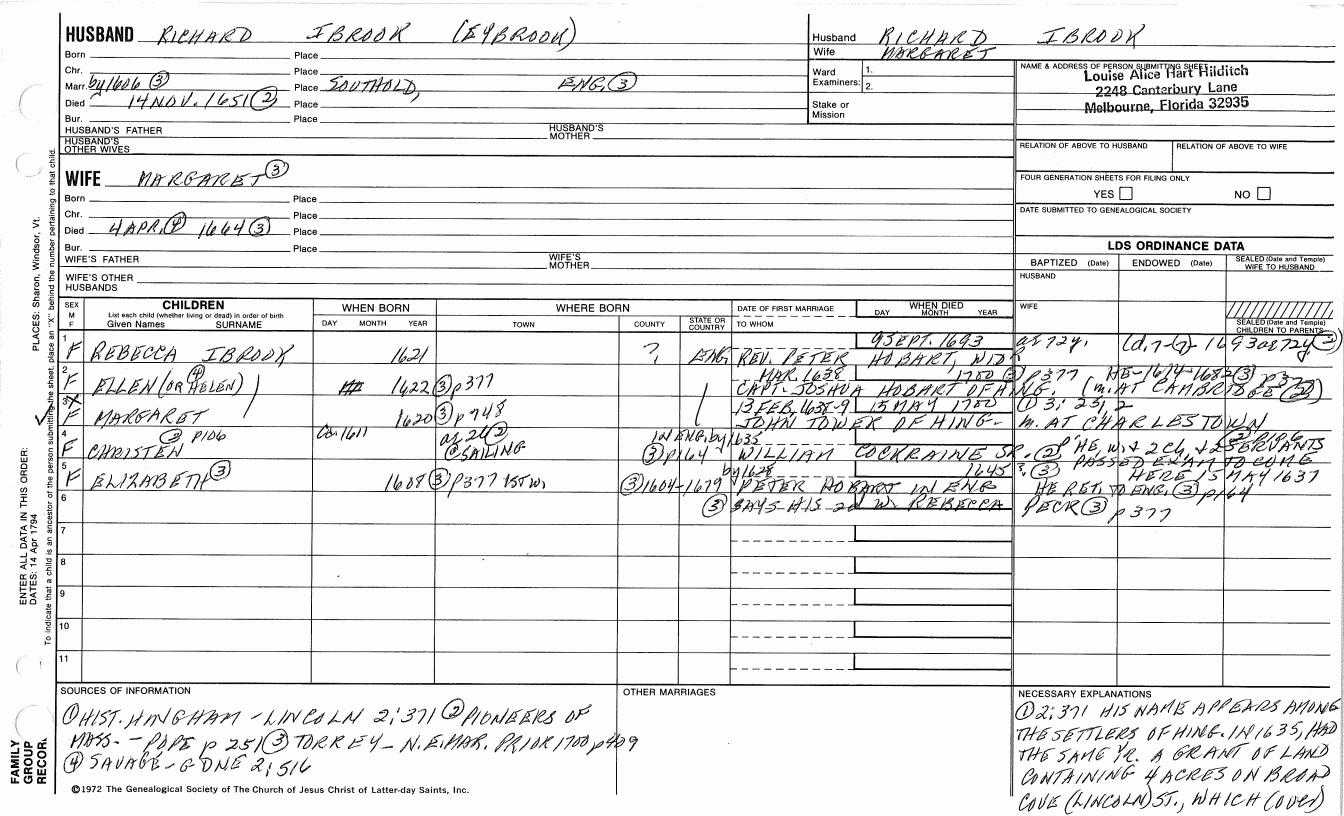 HUSBAND RICHARD IBROOK (EYBROOK)
Born Place
Chr. Place
Marr. by 1606 (3) Place SOUTHOLD, ENG. (3)
Died 14 NOV. 1651 (2) Place
Bur. Place
HUSBAND'S FATHER HUSBAND'S MOTHER
HUSBAND'S OTHER WIVES
WIFE MARGARET (3)
Born Place
Chr. Place
Died 4 APR. (4) 1664 (3) Place
Bur. Place
WIFE'S FATHER WIFE'S MOTHER
WIFE'S OTHER HUSBANDS
Husband RICHARD IBROOK
Wife MARGARET
Ward Examiners: 1.
2.
Stake or Mission
NAME & ADDRESS OF PERSON SUBMITTING SHEET
Louise Alice Hart Hilditch
2248 Canterbury Lane
Melbourne, Florida 32935
RELATION OF ABOVE TO HUSBAND RELATION OF ABOVE TO WIFE
FOUR GENERATION SHEETS FOR FILING ONLY
YES NO
DATE SUBMITTED TO GENEALOGICAL SOCIETY
LDS ORDINANCE DATA
BAPTIZED (Date) ENDOWED (Date) SEALED (Date and Temple) WIFE TO HUSBAND
HUSBAND
WIFE
SEALED (Date and Temple) CHILDREN TO PARENTS
SEX M F
CHILDREN
List each child (whether living or dead) in order of birth
Given Names SURNAME
WHEN BORN
DAY MONTH YEAR
WHERE BORN
TOWN COUNTY STATE OR COUNTRY
DATE OF FIRST MARRIAGE
TO WHOM
WHEN DIED
DAY MONTH YEAR
9 SEPT. 1693 at 72y. (d. 7-7-1693 at 72y (3)
1 F REBECCA IBROOK 1621 ? ENG REV. PETER HOBART, WIDR
MAR. 1638 1700 (3) p377 HE-1614-1682 (3) p377
2 F ELLEN (OR HELEN) (4) 1622 (3) p377 CAPT. JOSHUA HOBART OF HING. (m. AT CAMBRIDGE (2))
13 FEB, 1638-9 15 MAY 1700 (1) 3; 231, 2
3 X F MARGARET 1620 (3) p748 JOHN TOWER OF HING- m. AT CHARLESTOWN
(2) P106 Ca. 1611 at 26 (2) IN ENG. by 1635
4 F CHRISTEN @ SAILING (3) p164 WILLIAM COCKRAINE SR. (2) P'HE, W. & 2 Ch. & 2 SERVANTS (2) P106
by 1628 1645 PASSED EXAM TO COME
5 F ELIZABETH (3) 1608 (3) p377 1ST W. (3) 1604-1679 PETER HOBART IN ENG HERE 15 MAY 1637
HE RET. TO ENG. (3) p164
6 (3) SAYS HIS 2d W. REBECCA PECK (3) p377
7
8
9
10
11
SOURCES OF INFORMATION
(1) HIST. HINGHAM - LINCOLN 2; 371 (2) PIONEERS OF
MASS. - POPE p 251 (3) TORREY - N.E. MAR. PRIOR 1700 p409
(4) SAVAGE - G DNE 2; 516
OTHER MARRIAGES
NECESSARY EXPLANATIONS
(1) 2; 371 HIS NAME APPEARS AMONG
THE SETTLERS OF HING. IN 1635, HAD
THE SAME YR. A GRANT OF LAND
CONTAINING 4 ACRES ON BROAD
COVE (LINCOLN) ST., WHICH (over)
©1972 The Genealogical Society of The Church of Jesus Christ of Latter-day Saints, Inc.
FAMILY GROUP RECORD
ENTER ALL DATA IN THIS ORDER:
DATES: 14 Apr 1794
PLACES: Sharon, Windsor, Vt.
To indicate that a child is an ancestor of the person submitting the sheet, place an "X" behind the number pertaining to that child.